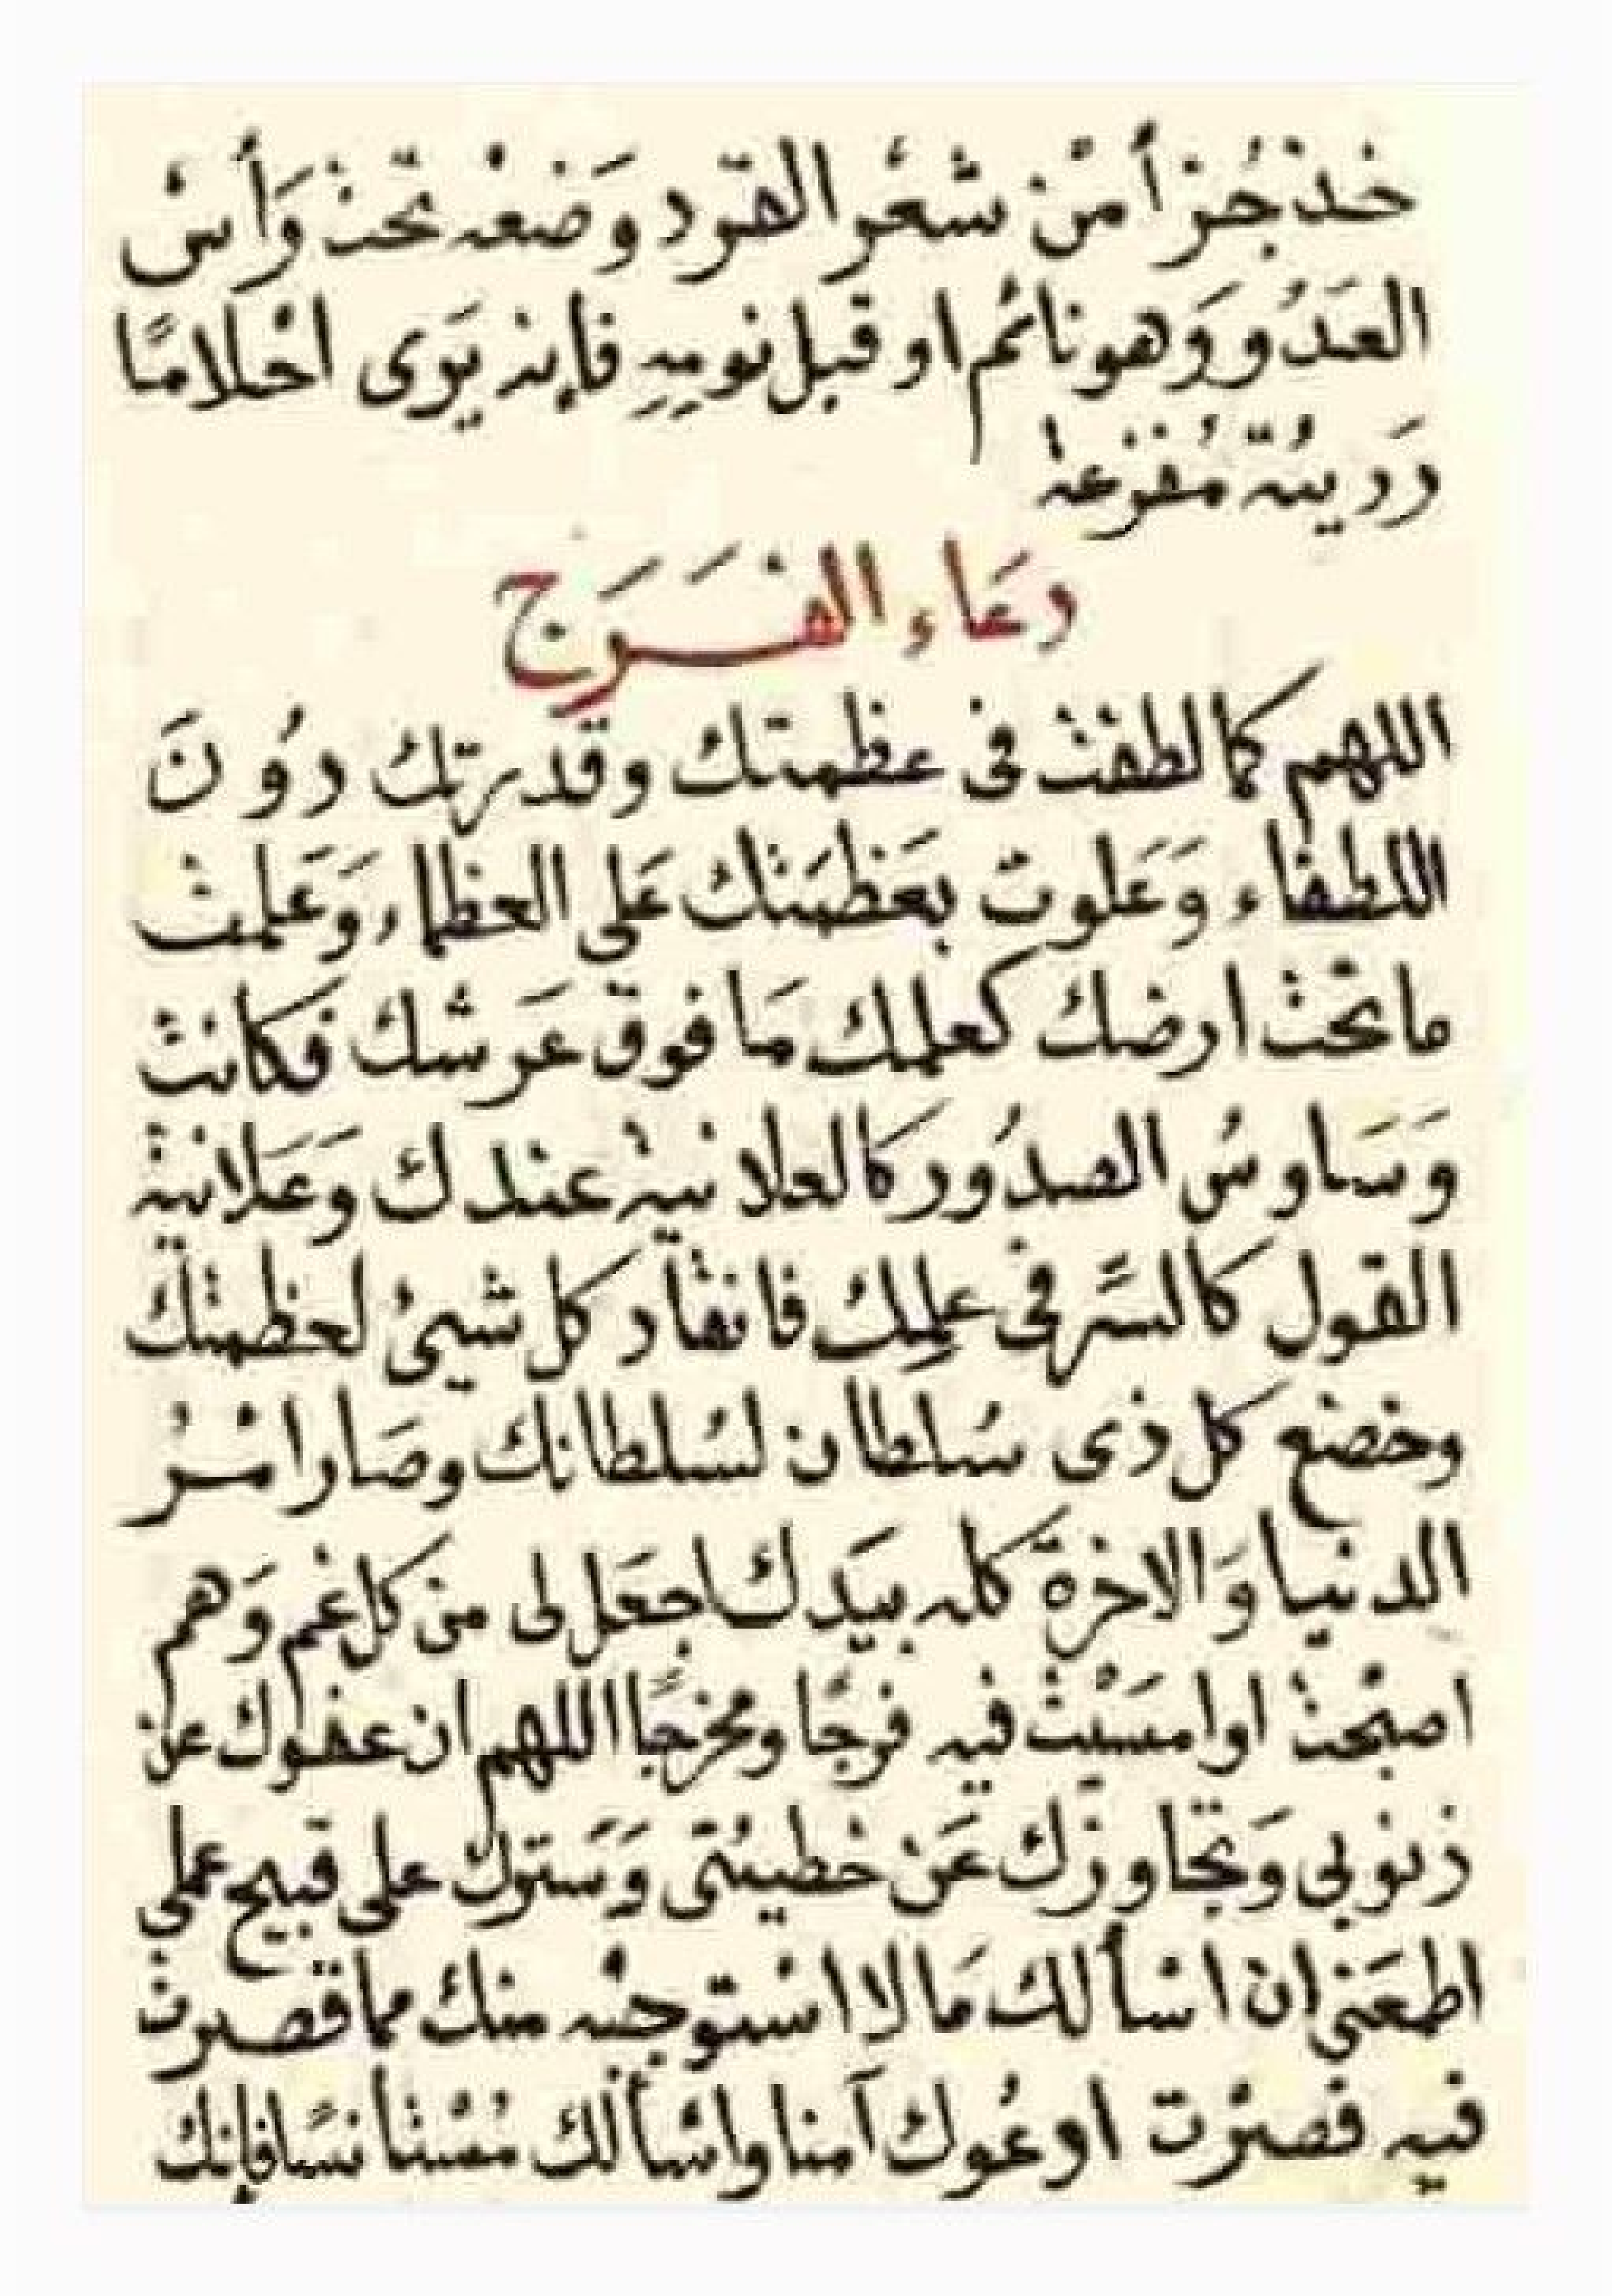 خذ جُزأ مْن شعْر القرد وَضعْه تحْت رَأسْ
العَدُو وَهو نائم او قبل نوميِهِ فإنه يَرى احْلامًا
رَديئُة مُفزعه
دعَاء الفَرَج
اللهم كما لطفْتْ فى عظمتك وقدرتكُ دوُنَ
اللطفاء وَعَلوت بعَظمَتك عَلى العظماء وَعَلمتْ
ما تحْتْ ارضك كعلمك مَا فوق عَرشك فكانتْ
وَسَاوسُ الصدُور كالعلانيهْ عندك وَعَلانيةْ
القول كالسّرِ فى علمِكْ فانقْاد كل شيئُ لعظمتْك
وخضْع كل ذى سُلطان لسُلطانك وصَار امْرُ
الدنيا وَالاخرة كله بيَدك اجعَل لى من كل غم وَهم
اصبْحتْ او امسَيْتْ فيه فرجًا ومخرجًا اللهم ان عفوك عن
ذنوبي وَتجاوزك عَنْ خطيئتى وَسَترك على قبيح عملي
اطمعَني ان اسْألك مَا لا اسْتوجبْه منك مما قصرت
فيه قصرْت ادعُوك آمنا واسْألك مُسْتأنسًا فإنك